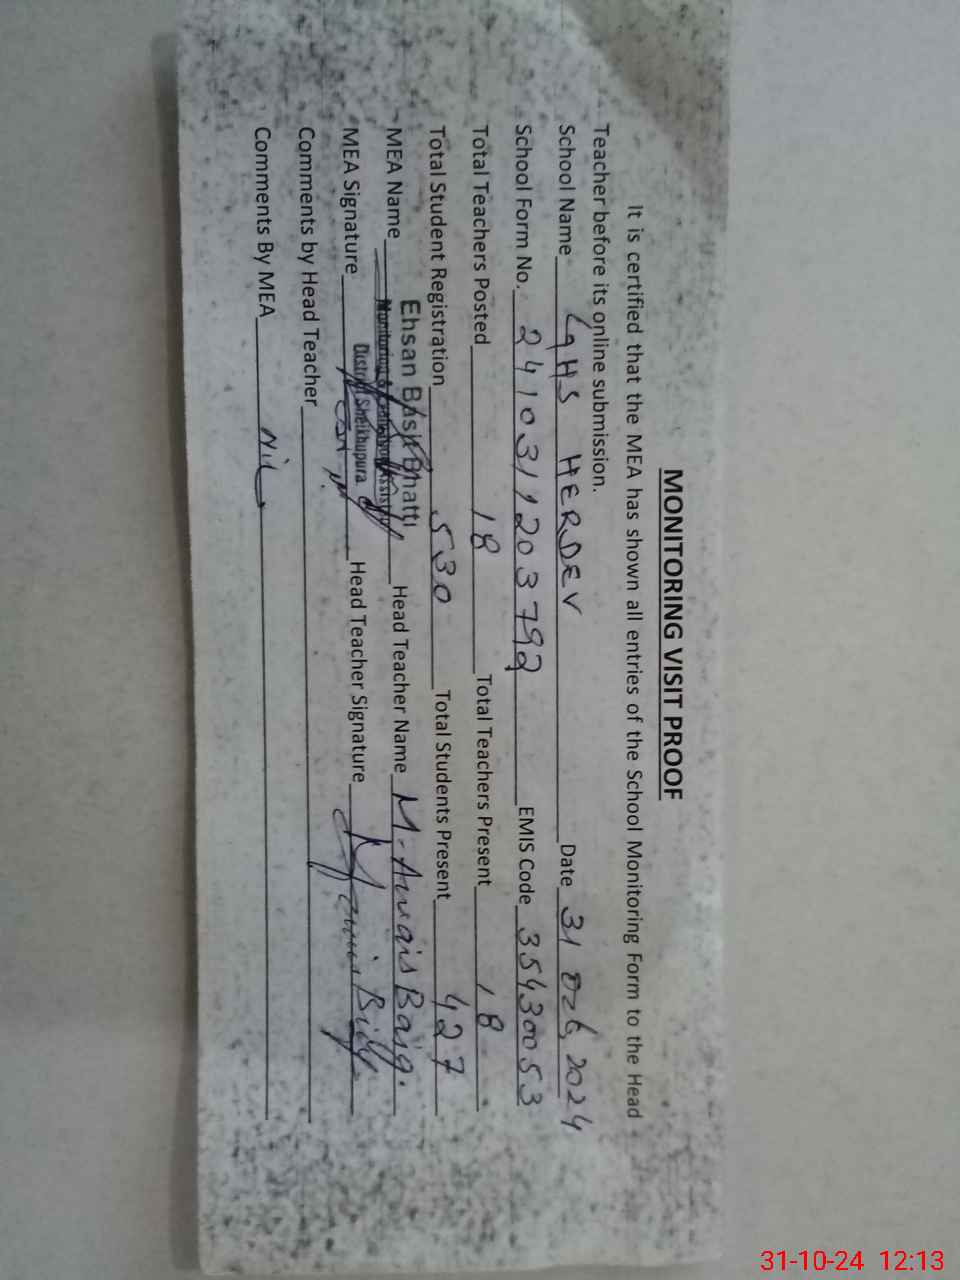 MONITORING VISIT PROOF
It is certified that the MEA has shown all entries of the School Monitoring Form to the Head
Teacher before its online submission.
School Name GHS HERDEV Date 31 Oct, 2024
School Form No. 2410311203792 EMIS Code 35430053
Total Teachers Posted 18 Total Teachers Present 18
Total Student Registration 530 Total Students Present 427
MEA Name Ehsan Bhatti Head Teacher Name M. Awais Baig.
Monitoring &
MEA Signature District Sheikhupura Head Teacher Signature
Comments by Head Teacher
Comments By MEA Nil
31-10-24 12:13